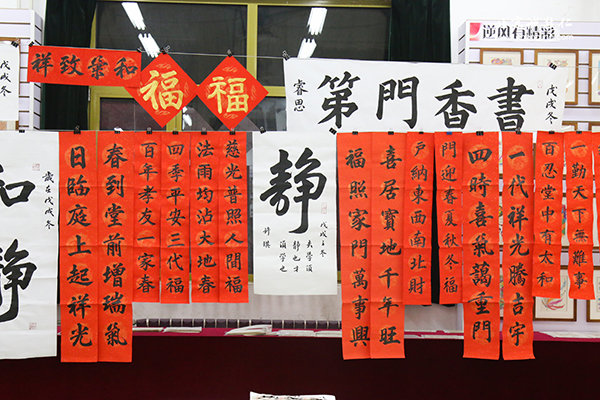 逆风有精彩
和氣致祥
福
福
戊戌冬
書香門第
睿思
戊戌冬
一勤天下無難事
百忍堂中有太和
一代祥光騰吉宇
四時喜氣萬重門
門迎春夏秋冬福
戶納東西南北財
喜居寶地千年旺
福照家門萬事興
戊戌之冬
夫學須
静也才
須學也
静
慈光普照人間福
法雨均沾大地春
四季平安三代福
百年孝友一家春
春到堂前增瑞氣
日臨庭上起祥光
歲在戊戌冬
和静